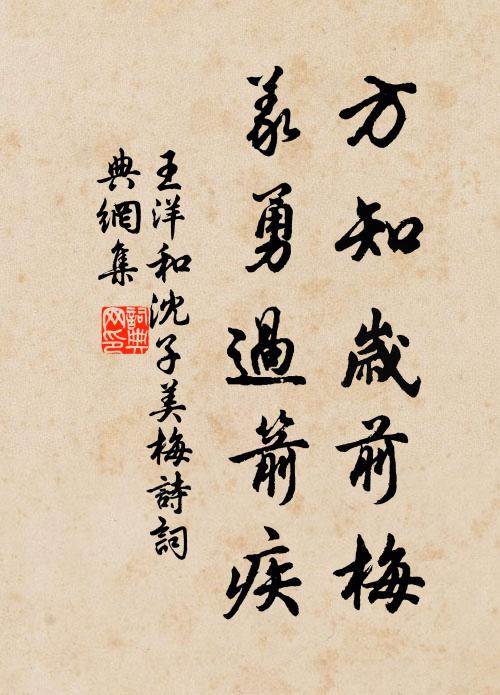 方知歲前梅
義勇過箭疾
王洋和沈子美梅詩詞
典網集
詞典
网印